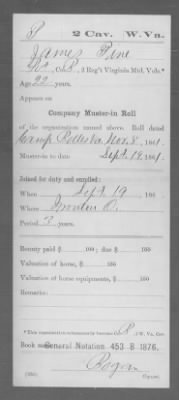 P 2 Cav. W. Va.
James Pine
Co. B, 2 Reg't Virginia Mtd. Vols.*
Age 22 years.
Appears on
Company Muster-in Roll
of the organization named above. Roll dated
Nov. 8, 1861.
Muster-in to date Sept. 19, 1861.
Joined for duty and enrolled:
When Sept. 19, 186
Where Ironton O.
Period 3 years.
Bounty paid $ 100; due $ 100
Valuation of horse, $ 100
Valuation of horse equipments, $ 100
Remarks:
*This organization subsequently became Co. B, 2 W. Va. Cav.
Book mark: General Notation 453 B 1876.
Copyist.